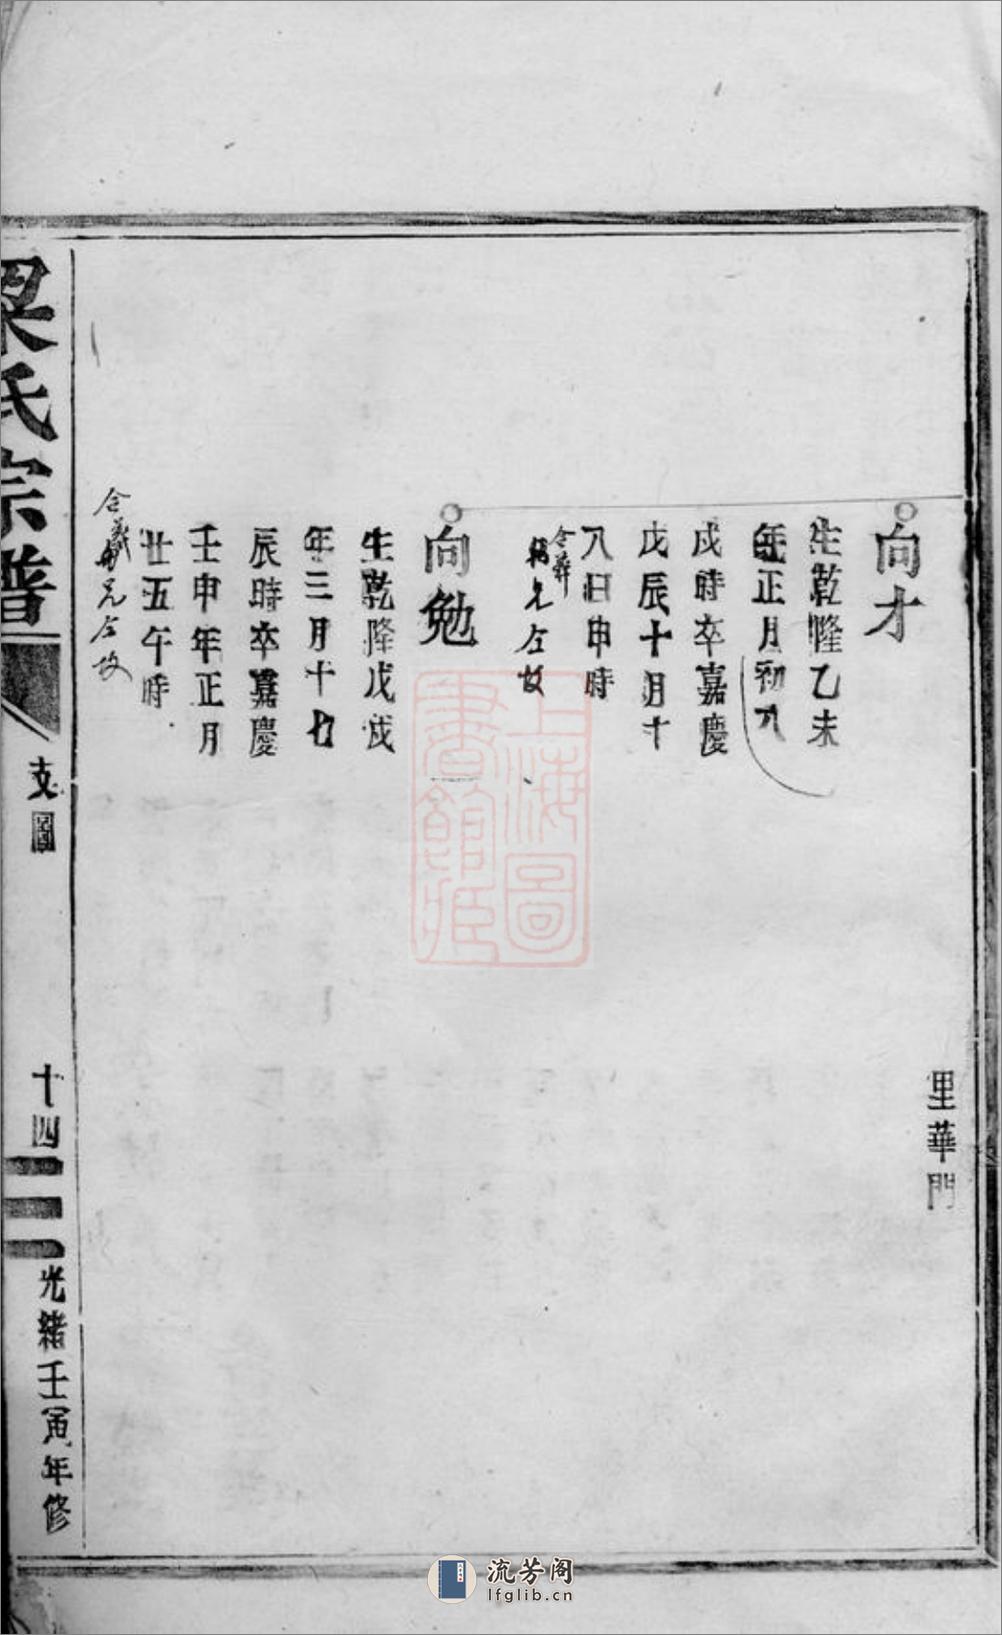 里華門
向才
生乾隆乙未
年正月初九
戌時卒嘉慶
戊辰十月十
八日申時
合葬
兄左故
向勉
生乾隆戊戌
年三月十七
辰時卒嘉慶
壬申年正月
廿五午時
合葬兄左故
梁氏宗譜
支圖
十四
光緒壬寅年修
上海圖
書館藏
流芳阁
lfglib.cn